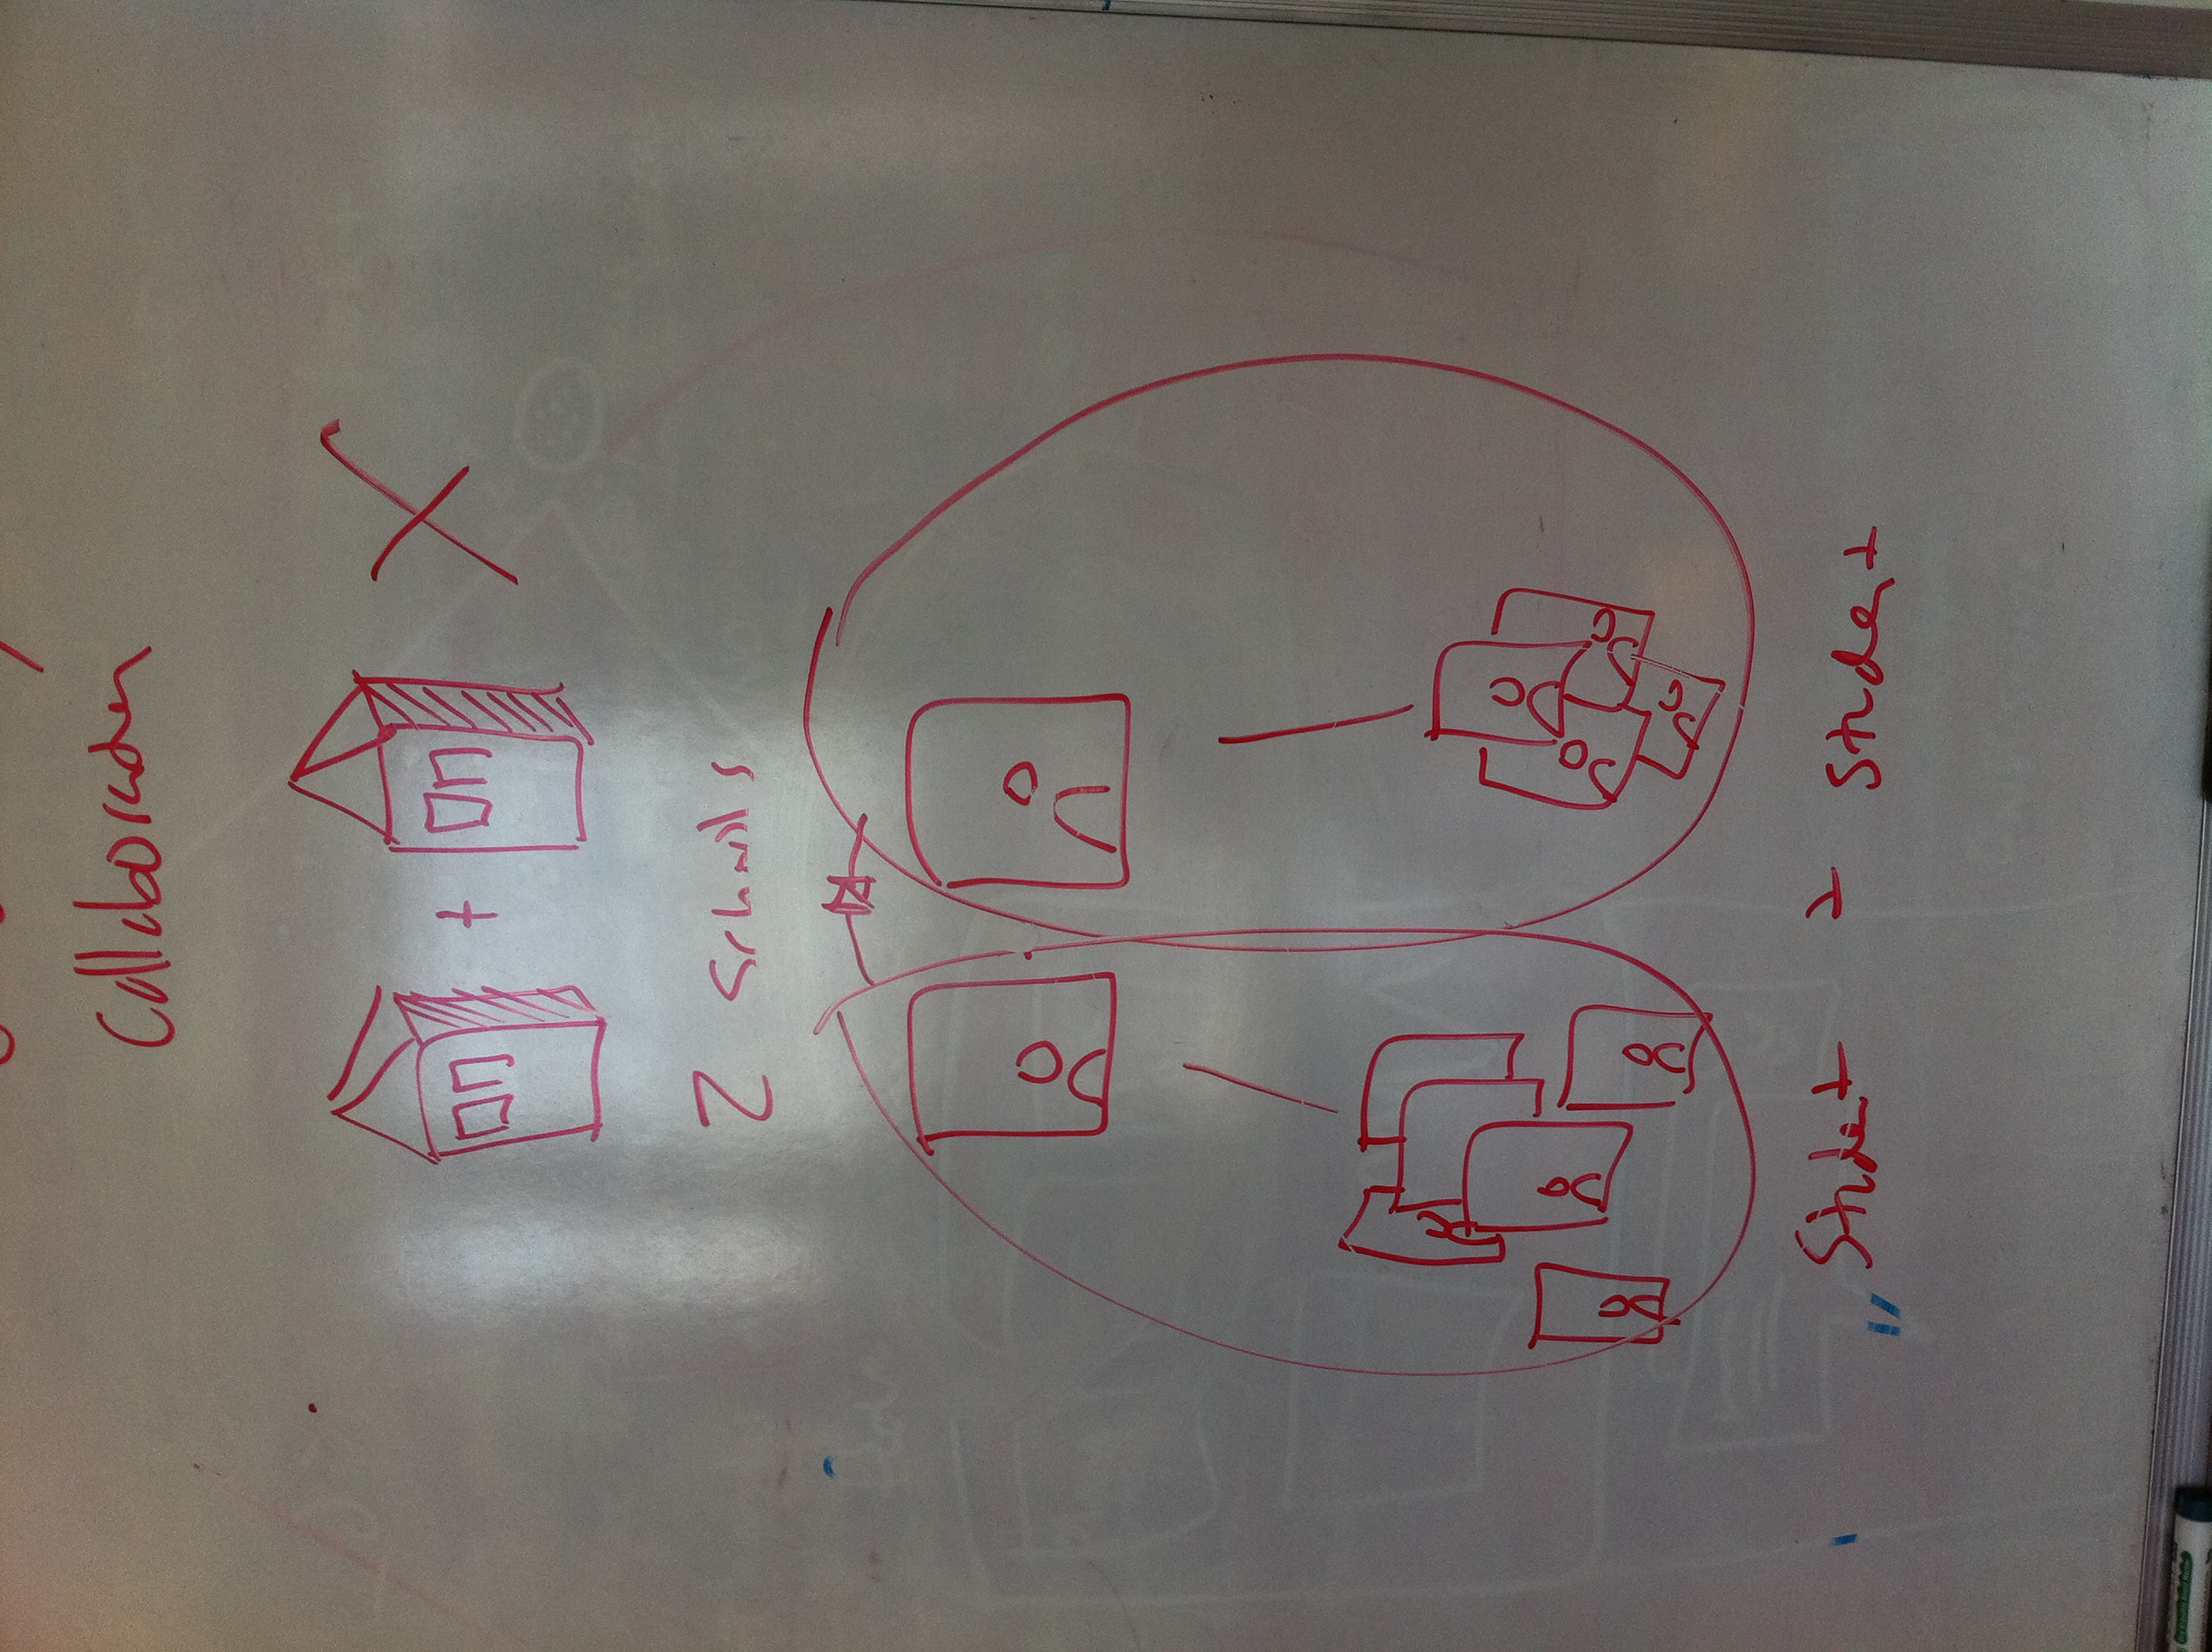 Collaboration
+
2 Schools
Student 2 Student